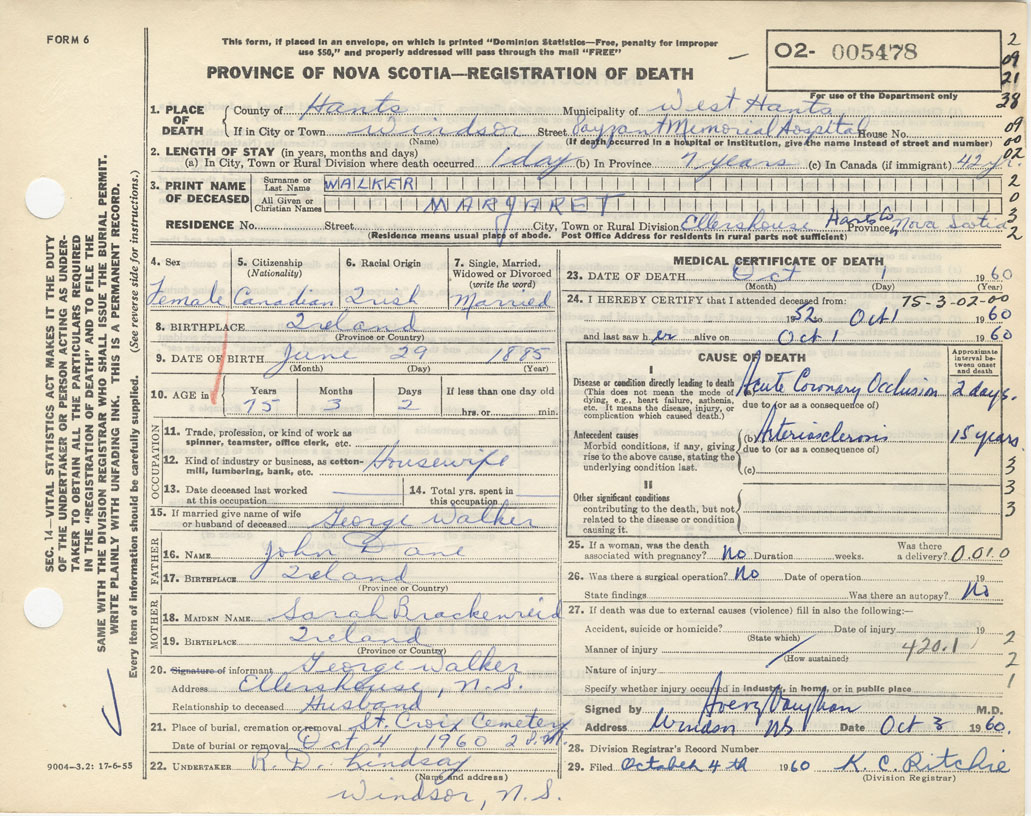 FORM 6
This form, if placed in an envelope, on which is printed "Dominion Statistics—Free, penalty for improper
use $50," and properly addressed will pass through the mail "FREE"
PROVINCE OF NOVA SCOTIA—REGISTRATION OF DEATH
O2- 005478
For use of the Department only
2
09
21
38
09
00
02
2
0
3
2
SEC. 14—VITAL STATISTICS ACT MAKES IT THE DUTY
OF THE UNDERTAKER OR PERSON ACTING AS UNDER-
TAKER TO OBTAIN ALL THE PARTICULARS REQUIRED
IN THE "REGISTRATION OF DEATH" AND TO FILE THE
SAME WITH THE DIVISION REGISTRAR WHO SHALL ISSUE THE BURIAL PERMIT.
WRITE PLAINLY WITH UNFADING INK. THIS IS A PERMANENT RECORD.
Every item of information should be carefully supplied. (See reverse side for instructions.)
9004-3.2: 17-6-55
1. PLACE OF DEATH
County of Hants Municipality of West Hants
If in City or Town Windsor Street Payzant Memorial Hospital House No.
(Name) (If death occurred in a hospital or institution, give the name instead of street and number)
2. LENGTH OF STAY (in years, months and days)
(a) In City, Town or Rural Division where death occurred 1 day (b) In Province 7 years (c) In Canada (if immigrant) 42 yr.
3. PRINT NAME OF DECEASED
Surname or Last Name WALKER
All Given or Christian Names MARGARET
RESIDENCE No. Street City, Town or Rural Division Ellershouse Hants Co Province Nova Scotia
(Residence means usual place of abode. Post Office Address for residents in rural parts not sufficient)
4. Sex Female
5. Citizenship (Nationality) Canadian
6. Racial Origin Irish
7. Single, Married, Widowed or Divorced (write the word) Married
8. BIRTHPLACE Ireland
(Province or Country)
9. DATE OF BIRTH June 29 1885
(Month) (Day) (Year)
10. AGE in Years 75 Months 3 Days 2 If less than one day hrs. or min.
OCCUPATION
11. Trade, profession, or kind of work as spinner, teamster, office clerk, etc.
12. Kind of industry or business, as cotton-mill, lumbering, bank, etc. Housewife
13. Date deceased last worked at this occupation
14. Total yrs. spent in this occupation
15. If married give name of wife or husband of deceased George Walker
FATHER
16. NAME John Dane
17. BIRTHPLACE Ireland
(Province or Country)
MOTHER
18. MAIDEN NAME Sarah Brackenreid
19. BIRTHPLACE Ireland
(Province or Country)
20. Signature of informant George Walker
Address Ellershouse, N.S.
Relationship to deceased Husband
21. Place of burial, cremation or removal St. Croix Cemetery
Date of burial or removal Oct 4 1960 2 P.M
22. UNDERTAKER R. D. Lindsay
(Name and address)
Windsor, N.S.
MEDICAL CERTIFICATE OF DEATH
23. DATE OF DEATH Oct 1 1960
(Month) (Day) (Year)
24. I HEREBY CERTIFY that I attended deceased from: 75-3-02-00
1952 to Oct 1 1960
and last saw her alive on Oct 1 1960
CAUSE OF DEATH
Approximate interval between onset and death
I
Disease or condition directly leading to death (a) Acute Coronary Occlusion 2 days.
(This does not mean the mode of dying, e.g., heart failure, asthenia, etc. It means the disease, injury, or complication which caused death.)
due to (or as a consequence of)
Antecedent causes (b) Arteriosclerosis 15 years
Morbid conditions, if any, giving rise to the above cause, stating the underlying condition last.
due to (or as a consequence of)
(c)
3
3
3
3
II
Other significant conditions
contributing to the death, but not related to the disease or condition causing it.
25. If a woman, was the death associated with pregnancy? No Duration weeks. Was there a delivery? 0.01.0
26. Was there a surgical operation? No Date of operation 19
State findings Was there an autopsy? No
27. If death was due to external causes (violence) fill in also the following:—
Accident, suicide or homicide? Date of injury 19
(State which)
Manner of injury 420.1
(How sustained)
Nature of injury
2
2
1
Specify whether injury occurred in industry, in home, or in public place
Signed by Avery Vaughan M.D.
Address Windsor NS Date Oct 3 1960.
28. Division Registrar's Record Number
29. Filed October 4th 1960 K. C. Ritchie
(Division Registrar)